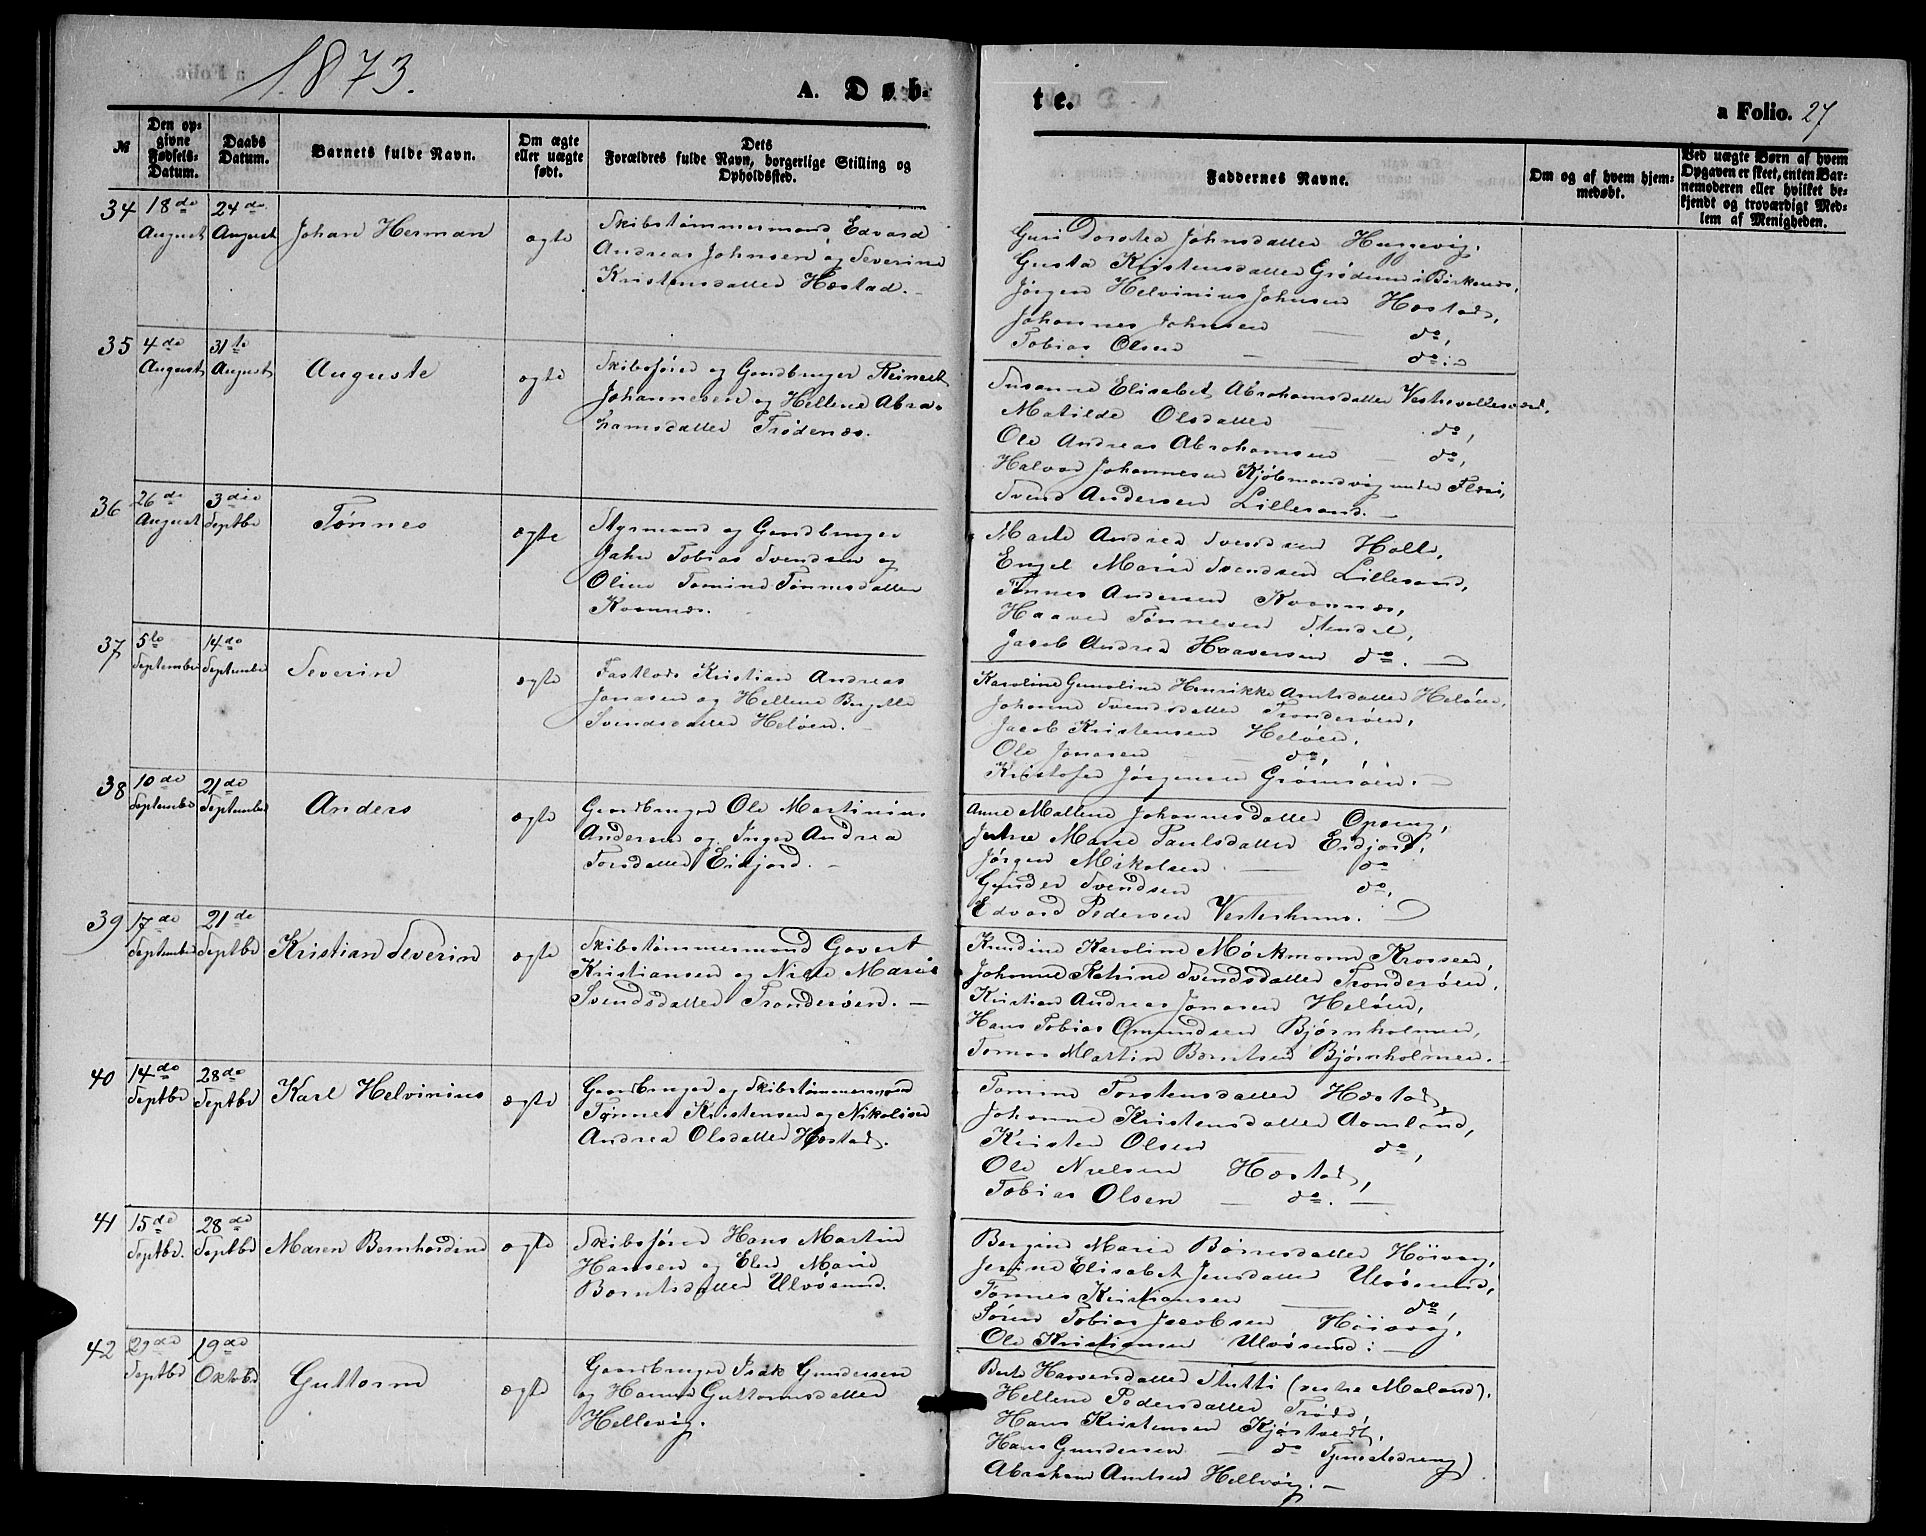 1873.
A. Døb-
te.
a Folio. 27
№
Den op-
givne
Fødsels-
Datum.
Daabs
Datum.
Barnets fulde Navn.
Om ægte
eller uægte
født.
Dets
Forældres fulde Navn, borgerlige Stilling og
Opholdssted.
Faddernes Navne.
Om og af hvem hjem-
medøbt.
Ved uægte Børn af hvem
Opgaven er skeet, enten Bar-
nemoderen eller hvilket be-
kjendt og troværdigt Med-
lem af Menigheden.
34
18de
August
24de
August
Johan Herman
ægte
Skibstømmermand Edvard
Andreas Johnsen og Severine
Kristensdatter Hæstad.
Guri Dorotea Johnsdatter
Gusta Kristensdatter i Birkenæs,
Jørgen Helvinius Johnsen Hæstad,
Johannes Johnsen — do,
Tobias Olsen — do.
35
4de
August
31te
August
Auguste
ægte
Skibsfører og Gaardbruger Reinert
Johannesen og Hellene Abra-
hamsdatter Trødenæs.
Susanne Elisabet Abrahamsdatter
Matilde Olsdatter — do,
Ole Andreas Abrahamsen — do,
Halvor Johannesen Kjøbmandsvig under
Svend Andersen Lillesand.
36
26de
August
3die
Septbr
Tønnes
ægte
Styrmand og Gaardbruger
Jahn Tobias Svendsen og
Oline Tomine Tønnesdatter
Kvannæs.
Marte Andrea Svendsen Holte,
Engel Marie Svendsen Lillesand,
Tønnes Andersen Kvannæs,
Haaver Tønnesen Stendel,
Jacob Andrea Haaversen do.
37
5te
September
14de
September
Severin
ægte
Fastlods Kristian Andreas
Jonasen og Hellene Birgitte
Svendsdatter Heløen.
Karoline Gunoline Henrikke Arntsdatter Heløen,
Johanne Svendsdatter Tronderøen,
Jacob Kristensen Heløen,
Ole Jonasen — do,
Kristofer Jørgensen Grømsøen.
38
10de
September
21de
September
Anders
ægte
Gaardbruger Ole Martinius
Andersen og Inger Andrea
Torsdatter Eidjord.
Anne Mallene Johannesdatter Opsang,
Marie Paulsdatter Eidjord,
Jørgen Mikalsen — do
Gunder Svendsen do,
Edvard Pedersen Vesterhuus.
39
17de
September
21de
Septbr
Kristian Severin
ægte
Skibstømmermand Govert
Kristiansen og Marie
Svendsdatter Tronderøen.
Knudine Karoline Mørkmann Krossen,
Johanne Katrine Svendsdatter Tronderøen,
Kristian Andreas Jonasen Heløen,
Hans Tobias Omundsen Bjørnholmen,
Tomas Martin Berntsen Bjørnholmen.
40
14de
Septbr
28de
Septbr
Karl Helvinius
ægte
Gaardbruger og Skibstømmermand
Tønnes Kristensen og Nikoline
Andrea Olsdatter Hæstad.
Tomine Torstensdatter Hæstad,
Johanne Kristensdatter Aamland,
Kristen Olsen — do,
Ole Nielsen Hæstad,
Tobias Olsen — do.
41
15de
Septbr.
28de
Septbr
Maren Bernhardine
ægte
Skibsfører Hans Martin
Hansen og Elen Marie
Berntsdatter Ulvøsund.
Bergine Marie Børresdatter Høivaag,
Jerine Elisabet Jensdatter Ulvøsund,
Tønnes Kristiansen — do,
Søren Tobias Jacobsen Høivaag,
Ole Kristiansen Ulvøsund.
42
29de
Septbr
19de
Oktobr
Guttorm
ægte
Gaardbruger Isak Gundersen
og Hanne Guttormsdatter
Hellevig.
Berte Haaversdatter (vestre Maland),
Hellene Pedersdatter Trøde,
Hans Kristensen Kjøstvedt,
Hans Gundersen — do Tjenestedreng)
Abraham Arntsen Hellevig.